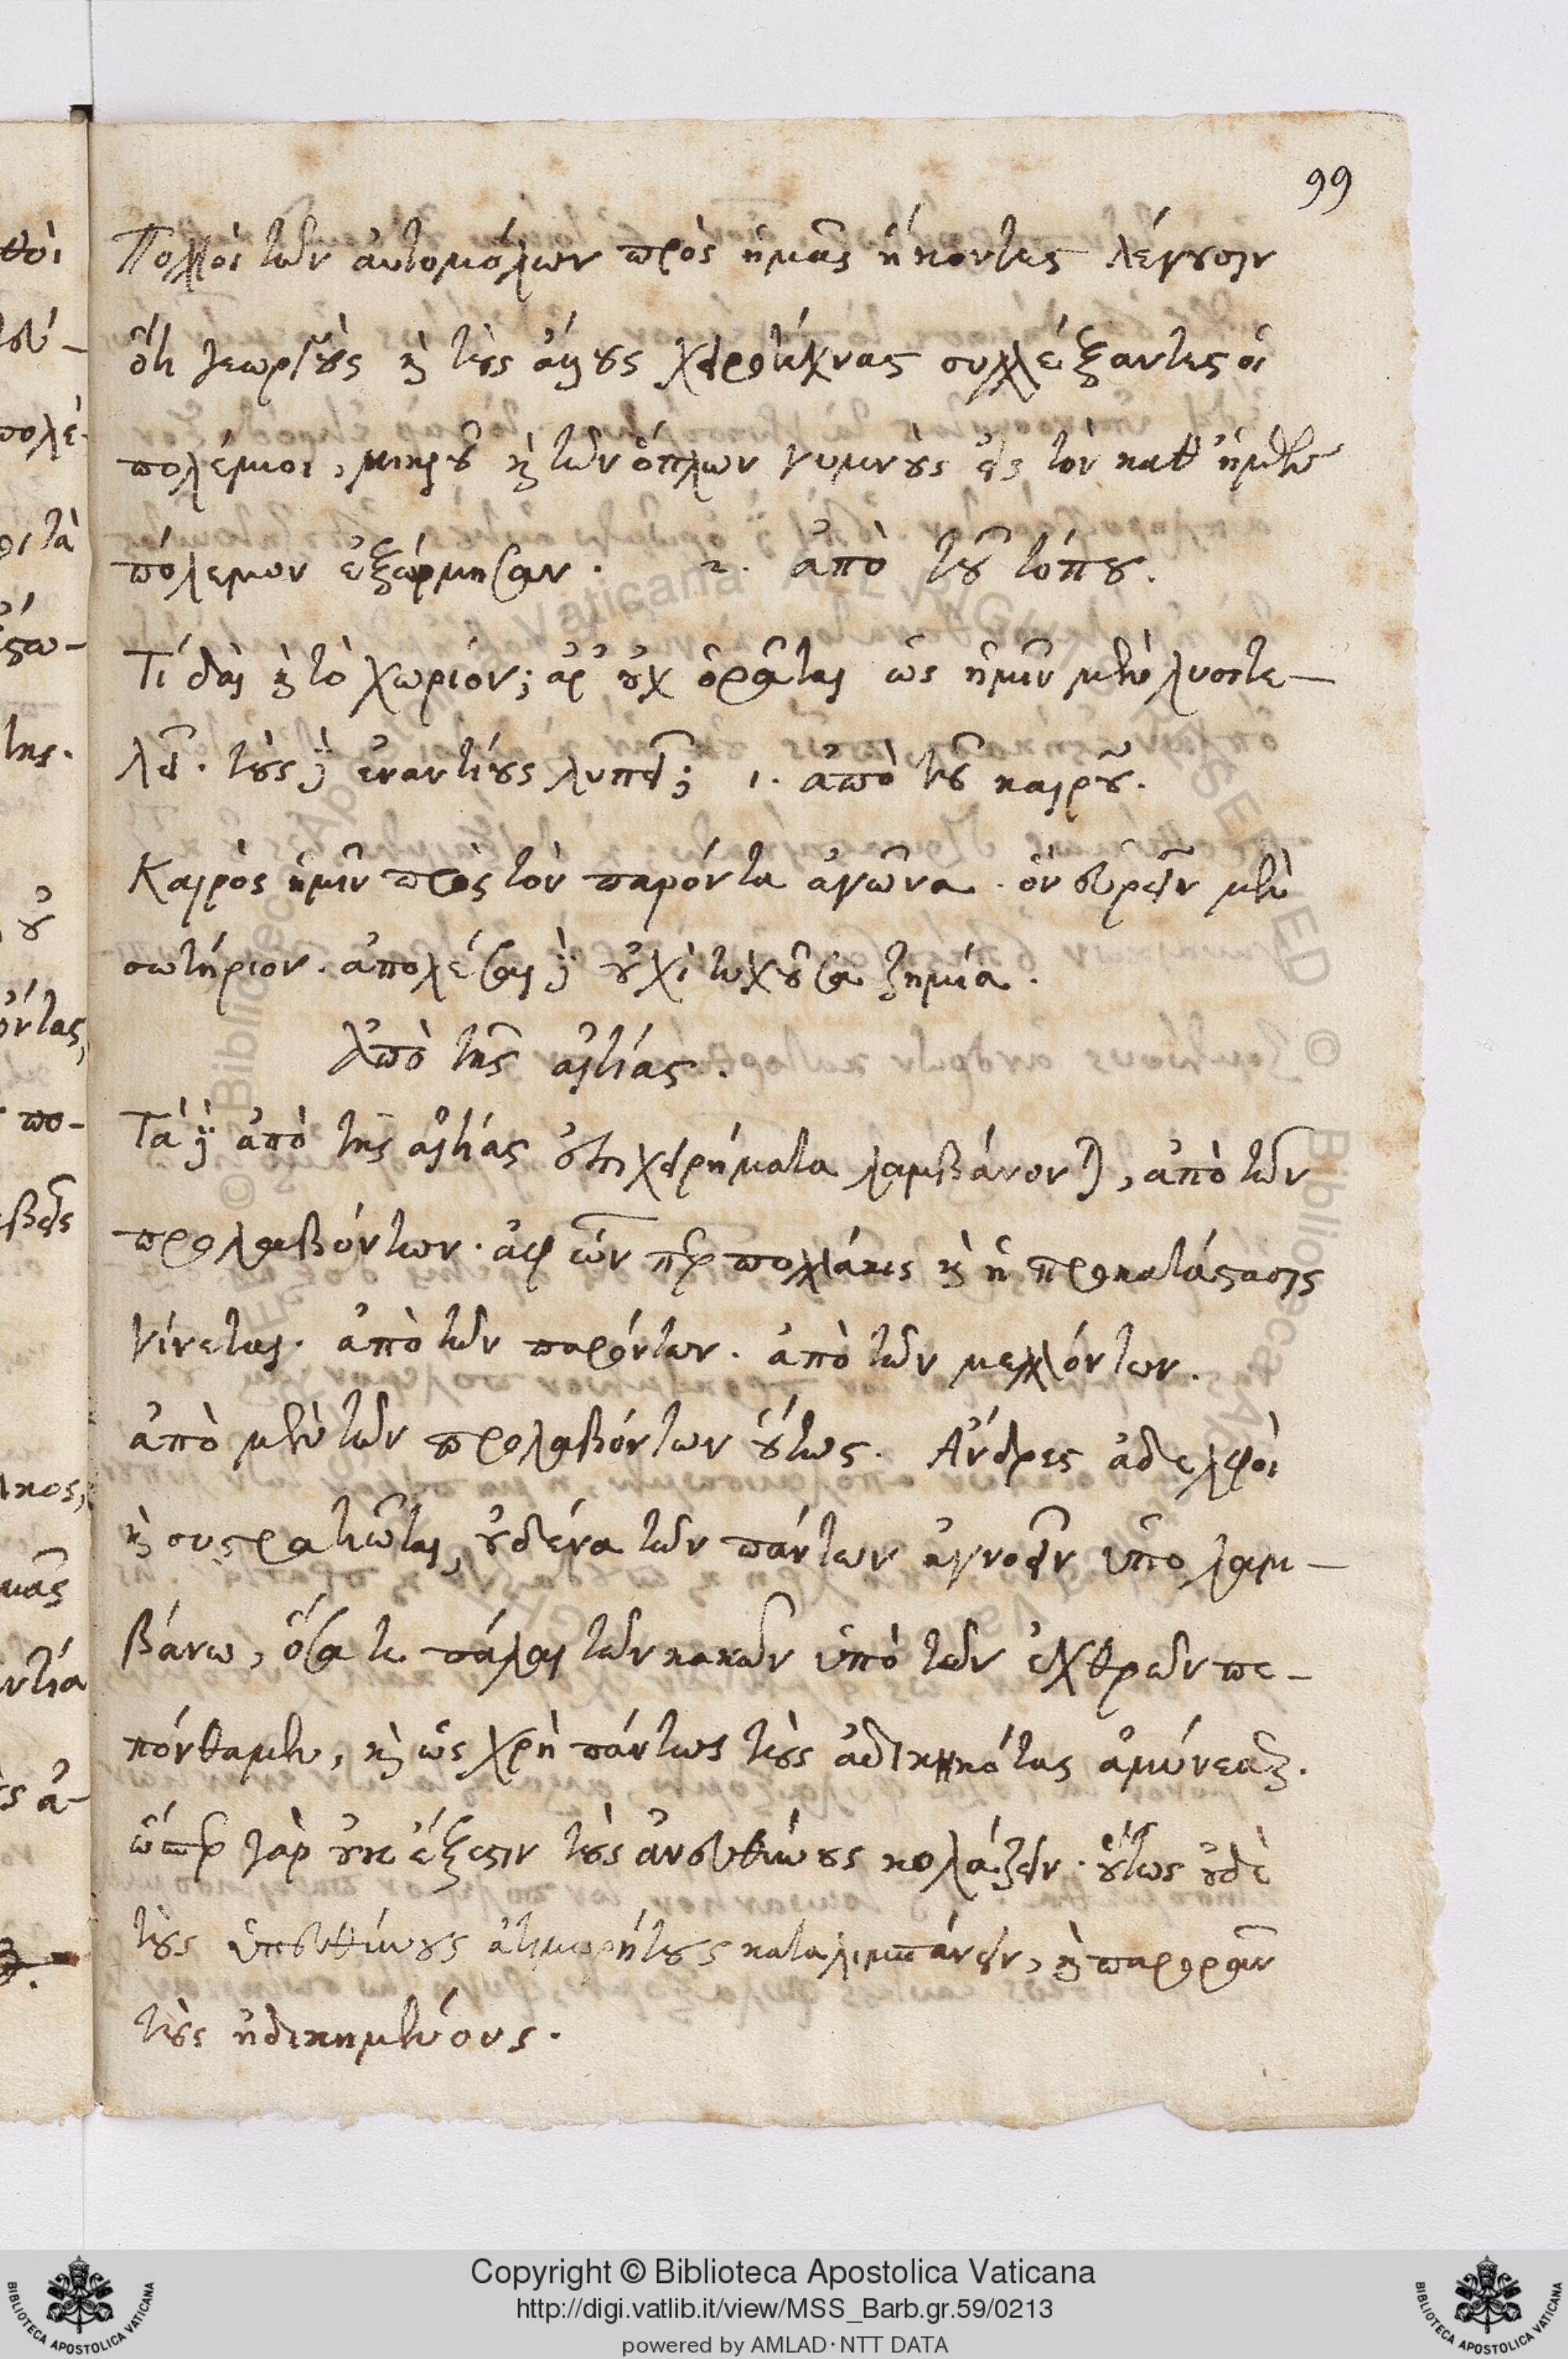 99
Πολλοὶ τῶν αὐτομόλων πρὸς ἡμᾶς ἥκοντες λέγουσιν
ὅτι γεωργοὺς καὶ τοὺς ἄλλους χειροτέχνας συλλέξαντες οἱ
πολέμιοι, μικροῦ καὶ τῶν ὅπλων γυμνοὺς εἰς τὸν καθ' ἡμῶν
πόλεμον ἐξώρμησαν. 2. ἀπὸ τοῦ τόπου.
Τί δαὶ καὶ τὸ χωρίον; ἆρ' οὐχ ὁρᾶται ὡς ἡμῖν μὲν λυσιτε-
λεῖ. τοὺς δὲ ἐναντίους λυπεῖ; 1. ἀπὸ τοῦ καιροῦ.
Καιρὸς ἡμῖν πρὸς τὸν παρόντα ἀγῶνα. ὃν εὑρεῖν μὲν
σωτήριον. ἀπολέσαι δὲ οὐχὶ τυχοῦσα ζημία.
Ἀπὸ τῆς αἰτίας.
Τὰ δὲ ἀπὸ τῆς αἰτίας ἐπιχειρήματα λαμβάνονται, ἀπὸ τῶν
προλαβόντων. ἀφ' ὧνπερ πολλάκις καὶ ἡ προκατάστασις
γίνεται. ἀπὸ τῶν παρόντων. ἀπὸ τῶν μελλόντων.
ἀπὸ μὲν τῶν προλαβόντων οὕτως. Ἄνδρες ἀδελφοὶ
καὶ συστρατιῶται, οὐδένα τῶν πάντων ἀγνοεῖν ὑπολαμ-
βάνω, ὅσα τε πάλαι τῶν κακῶν ὑπὸ τῶν ἐχθρῶν πε-
πόνθαμεν, καὶ ὡς χρὴ πάντως τοὺς ἀδικηκότας ἀμύνεσθαι.
ὥσπερ γὰρ οὐκ ἔξεστιν τοὺς ἀνευθύνους κολάζειν. οὕτως οὐδὲ
τοὺς ὑπευθύνους ἀτιμωρήτους καταλιμπάνειν, καὶ παρορᾶν
τοὺς ἠδικημένους.
Copyright © Biblioteca Apostolica Vaticana
http://digi.vatlib.it/view/MSS_Barb.gr.59/0213
powered by AMLAD · NTT DATA